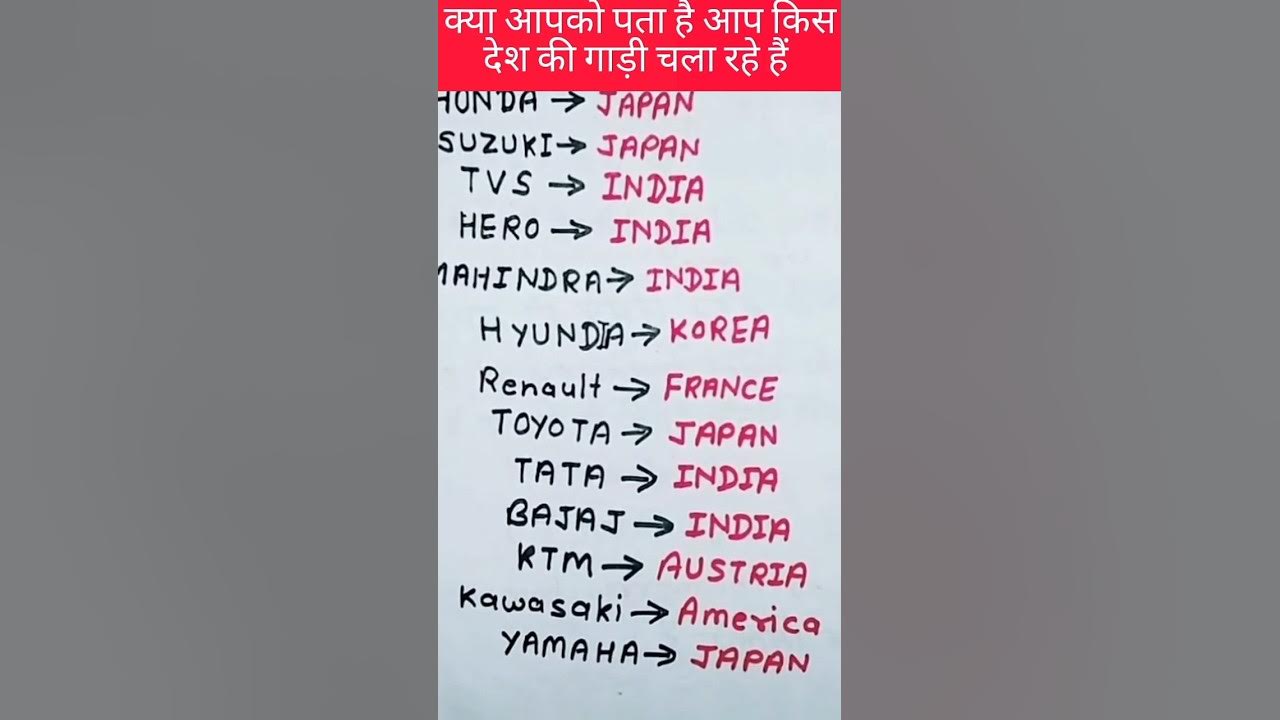 क्या आपको पता है आप किस
देश की गाड़ी चला रहे हैं
HONDA → JAPAN
SUZUKI → JAPAN
TVS → INDIA
HERO → INDIA
MAHINDRA → INDIA
HYUNDIA → KOREA
Renault → FRANCE
TOYOTA → JAPAN
TATA → INDIA
BAJAJ → INDIA
KTM → AUSTRIA
Kawasaki → America
YAMAHA → JAPAN